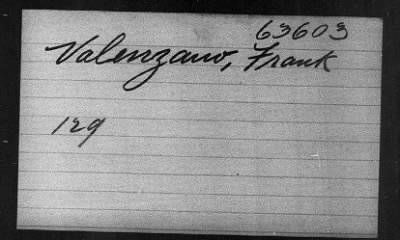 63603
Valenzano, Frank
129